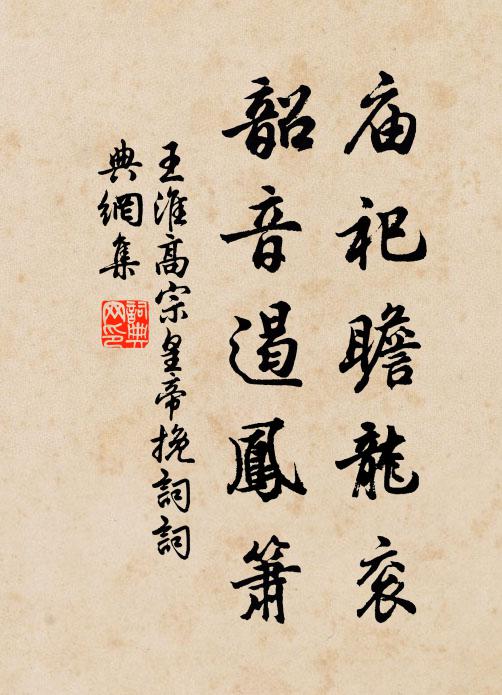 庙祀瞻龍衮
韶音遏鳳箫
王淮高宗皇帝挽詞詞
典網集
詞典网印